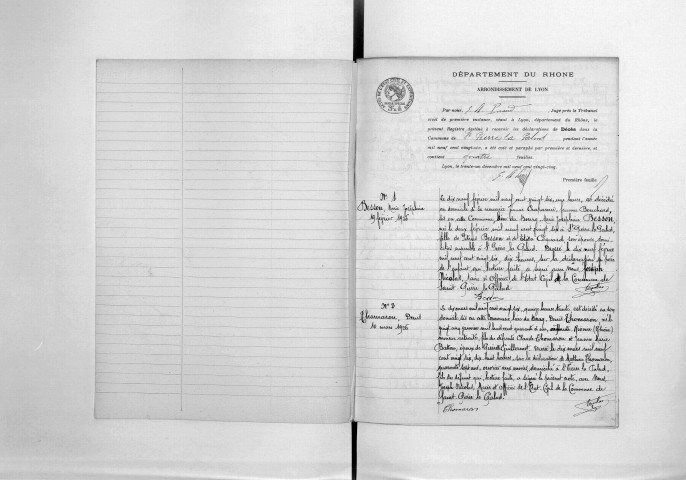 DÉPARTEMENT DU RHONE
ARRONDISSEMENT DE LYON
Par nous, Juge près le Tribunal
civil de première instance, séant à Lyon, département du Rhône, le
présent Registre destiné à recevoir les déclarations de Décès dans la
Commune de St Pierre la Palud pendant l'année
mil neuf cent vingt-six, a été coté et paraphé par première et dernière, et
contient quatre feuilles.
Lyon, le trente-un décembre mil neuf cent vingt-cinq.
Première feuille
N° 1
Besson, Marie Joséphine
19 février 1926
Le dix neuf février mil neuf cent vingt six, une heure, est décédée
en domicile de
sis en cette Commune, lieu du Bourg, Marie Joséphine Besson,
née le deux février mil neuf cent vingt six à St Pierre la Palud,
fille de Besson et de
ensemble à St Pierre la Palud. Dressé le dix neuf février
mil neuf cent vingt six, dix heures, sur la déclaration du père
de l'enfant qui, lecture faite, a signé avec Nous, Joseph
Nicolas, Maire et Officier de l'Etat Civil de la Commune de
Saint Pierre la Palud.
Besson
N° 2
Thomaron, Benoit
10 mars 1926
Le dix mars mil neuf cent vingt six, quinze heures trente, est décédé en son
domicile sis en cette Commune, lieu du Bourg, Benoit Thomaron, né le
vingt cinq janvier mil huit cent quarante (Rhône)
mineur retraité, fils de défunts Claude Thomaron et Jeanne Marie
époux de Pierrette Guillermet. Dressé le dix mars mil neuf
cent vingt six, dix huit heures, sur la déclaration de Mathieu Thomaron,
quarante sept ans, ouvrier aux mines, domicilié à St Pierre la Palud,
fils du défunt qui, lecture faite, a signé le présent acte, avec Nous,
Joseph Nicolas, Maire et Officier de l'Etat Civil de la Commune de
Saint Pierre la Palud.
Thomaron